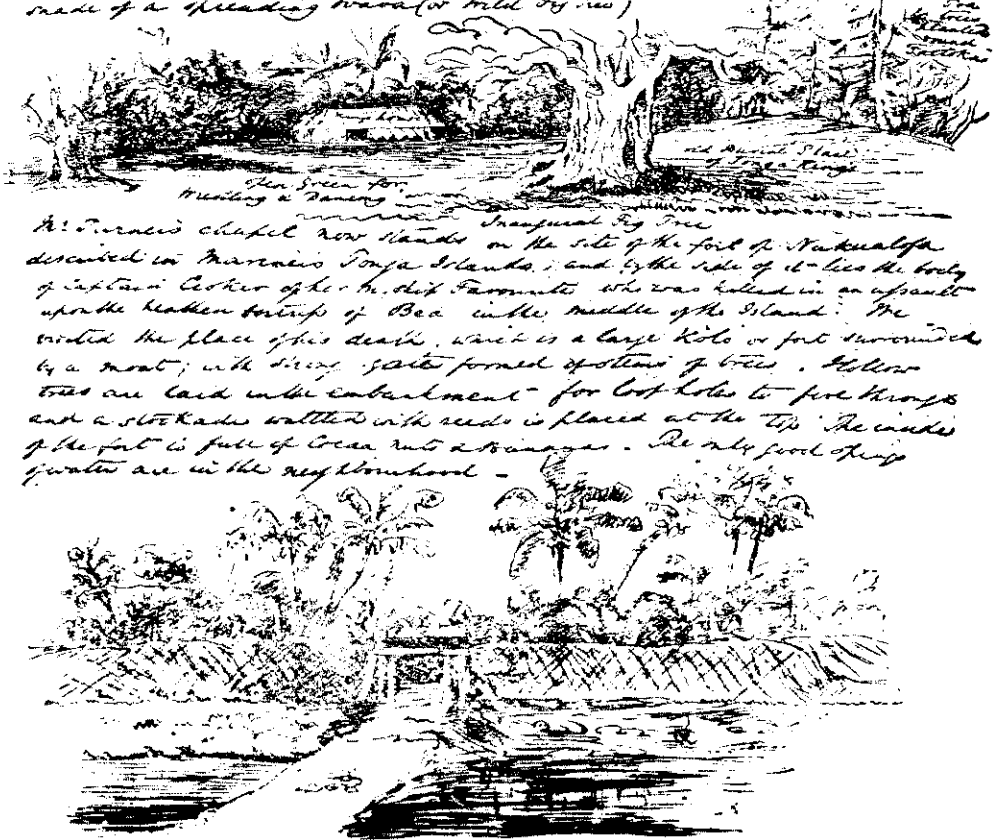 shade of a spreading Ovava (or wild fig tree)
trees
planted
round
Open Green for
Wrestling & Dancing
old Burial Place
of Tonga Kings
Inaugural Fig Tree
Mr Turner's chapel now stands on the site of the fort of Nukualofa
described in Mariner's Tonga Islands; and by the side of it lies the body
of Captain Croker of her M. ship Favourite who was killed in an assault
upon the heathen fortress of Bea in the middle of the Island. We
visited the place of his death, which is a large Kolo or fort surrounded
by a moat; with strong gates formed of stems of trees. Hollow
trees are laid in the embankment for loop holes to fire through
and a stockade wattled with reeds is placed at the top. The inside
of the fort is full of Cocoa nuts & bananas. The only good springs
of water are in the neighbourhood -